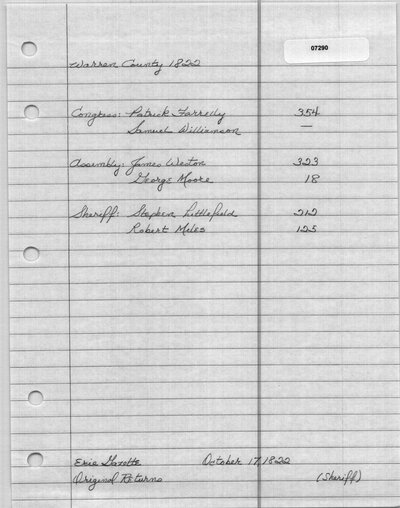 07290
Warren County 1822
Congress: Patrick Farrelly 354
Samuel Williamson —
Assembly: James Weston 323
George Moore 18
Sheriff: Stephen Littlefield 212
Robert Miles 125
Erie Gazette October 17, 1822
Original Returns (Sheriff)